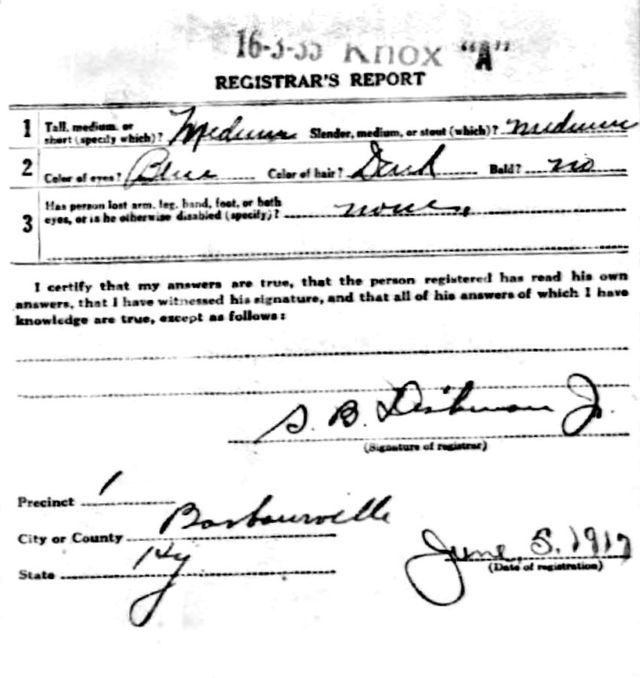 16-3-35 Knox "A"
REGISTRAR'S REPORT
1 Tall, medium, or short (specify which)? Medium Slender, medium, or stout (which)? medium
2 Color of eyes? Blue Color of hair? Dark Bald? no
3 Has person lost arm, leg, hand, foot, or both eyes, or is he otherwise disabled (specify)? none.
I certify that my answers are true, that the person registered has read his own
answers, that I have witnessed his signature, and that all of his answers of which I have
knowledge are true, except as follows:
S. B. Dishman Jr.
(Signature of registrar)
Precinct 1
City or County Barbourville
State Ky
June, 5, 1917
(Date of registration)